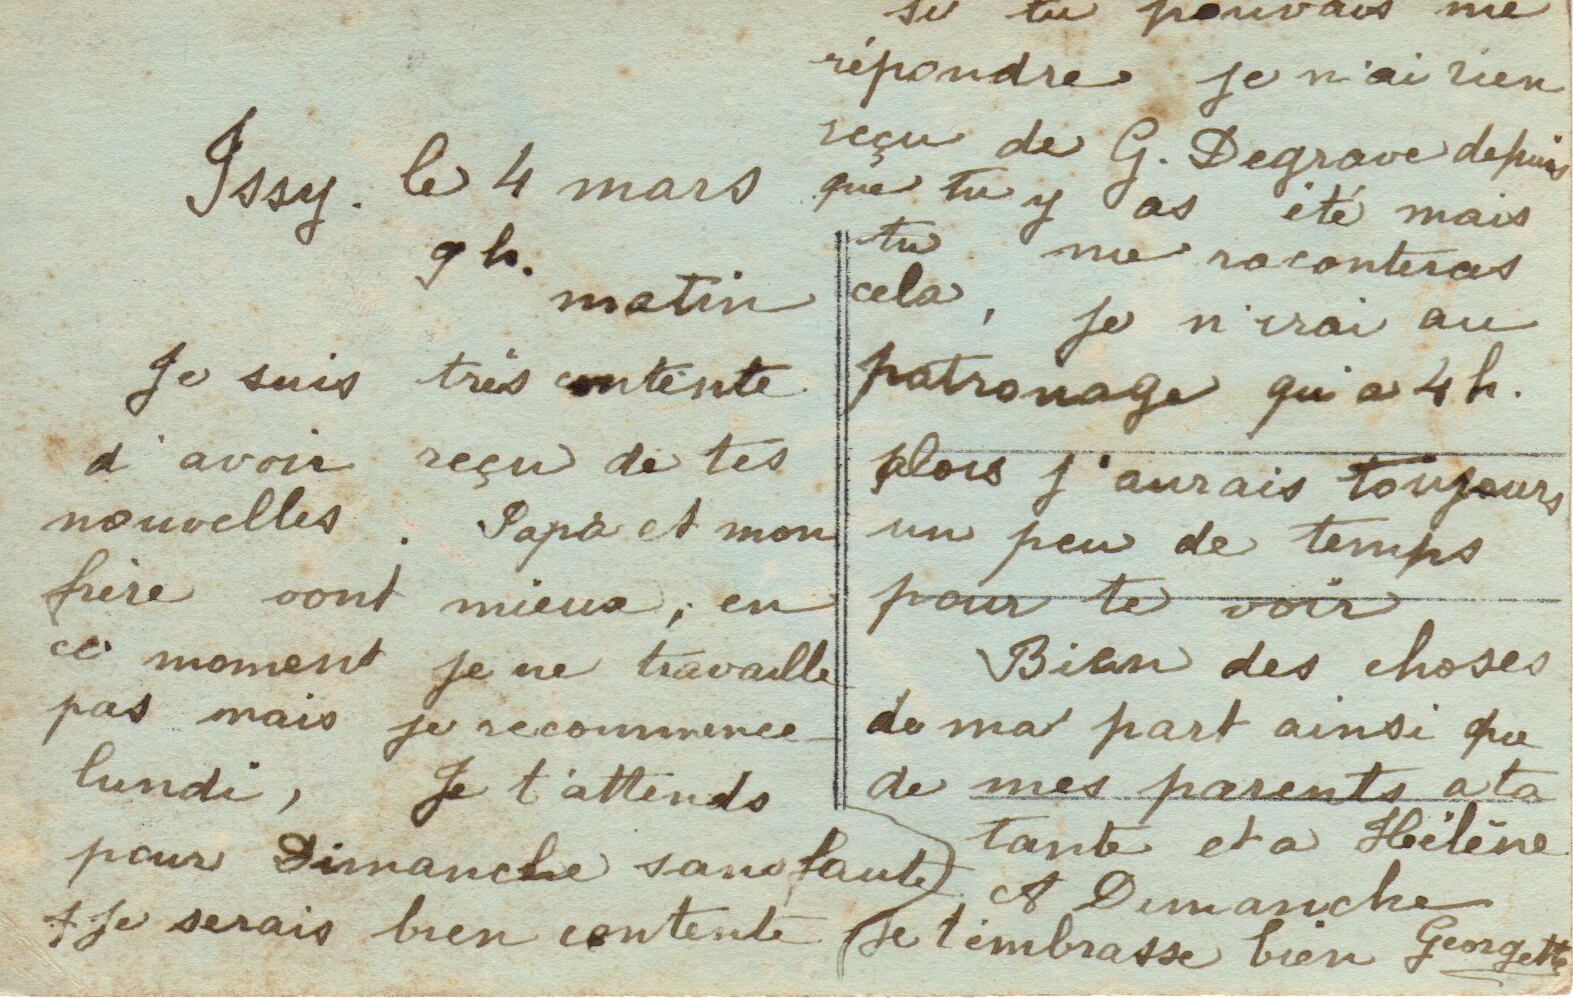 Issy. le 4 mars
9 h.
matin
Je suis très contente
d'avoir reçu de tes
nouvelles. Papa et mon
frère vont mieux, en
ce moment je ne travaille
pas mais je recommence
lundi, Je t'attends
pour Dimanche sans faute
Je serais bien contente
si tu pouvais me
répondre je n'ai rien
reçu de G. Degrave depuis
que tu y as été mais
tu me raconteras
cela, je n'irai au
patronage qu'a 4 h.
alors j'aurais toujours
un peu de temps
pour te voir
Bien des choses
de ma part ainsi que
de mes parents a ta
tante et a Hélène
A Dimanche
Je t'embrasse bien Georgette